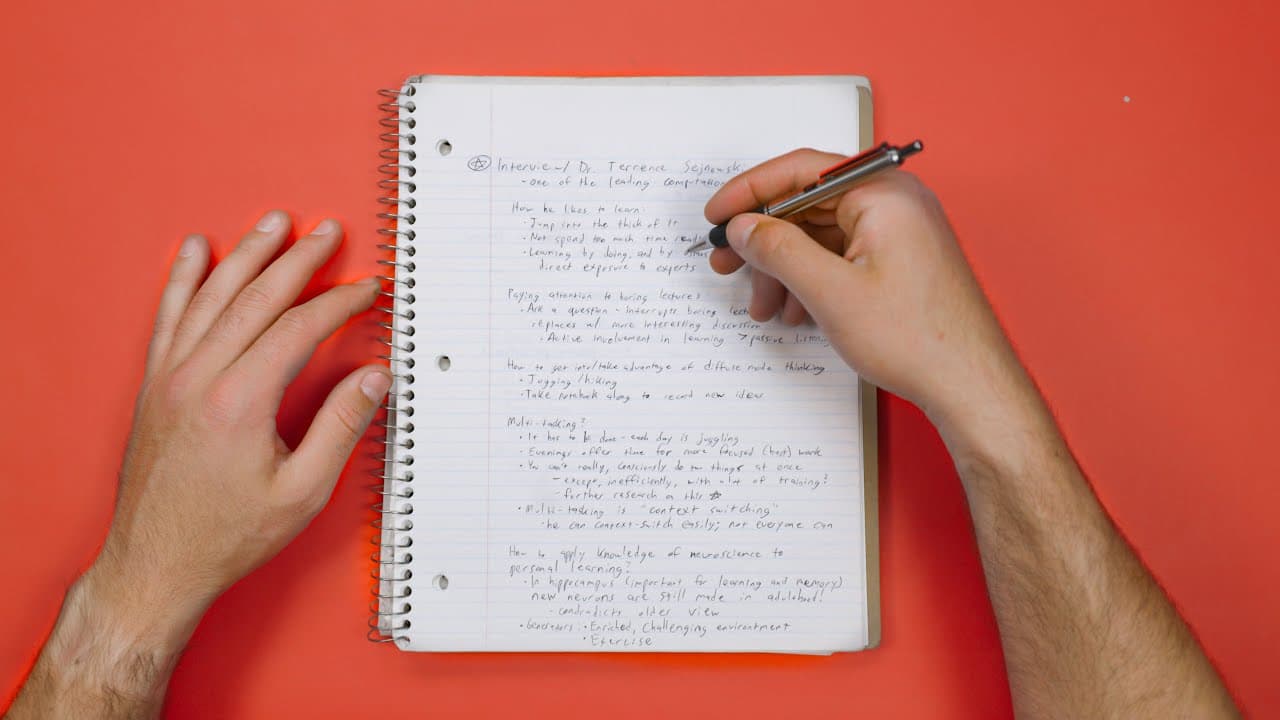 Interview w/ Dr. Terrence Sejnowski
- One of the leading computation
How he likes to learn:
• Jump into the thick of it
• Not spend too much time
• Learning by doing, and by
direct exposure to experts
Paying attention to boring lectures
• Ask a question - interrupts boring
replaces w/ more interesting discussion
• Active involvement in learning > passive listening
How to get into/take advantage of diffuse mode thinking
• Jogging/hiking
• Take notebook along to record new ideas
Multi-tasking?
• It has to be done - each day is juggling
• Evenings offer time for more focused (best) work
• You can't really, consciously do two things at once
- except, inefficiently, with a lot of training?
- further research on this ☆
• Multi-tasking is "context switching"
• he can context-switch easily; not everyone can
How to apply knowledge of neuroscience to
personal learning?
• In hippocampus (important for learning and memory)
new neurons are still made in adulthood!
- contradicts older view
• Generators: • Enriched, challenging environment
• Exercise